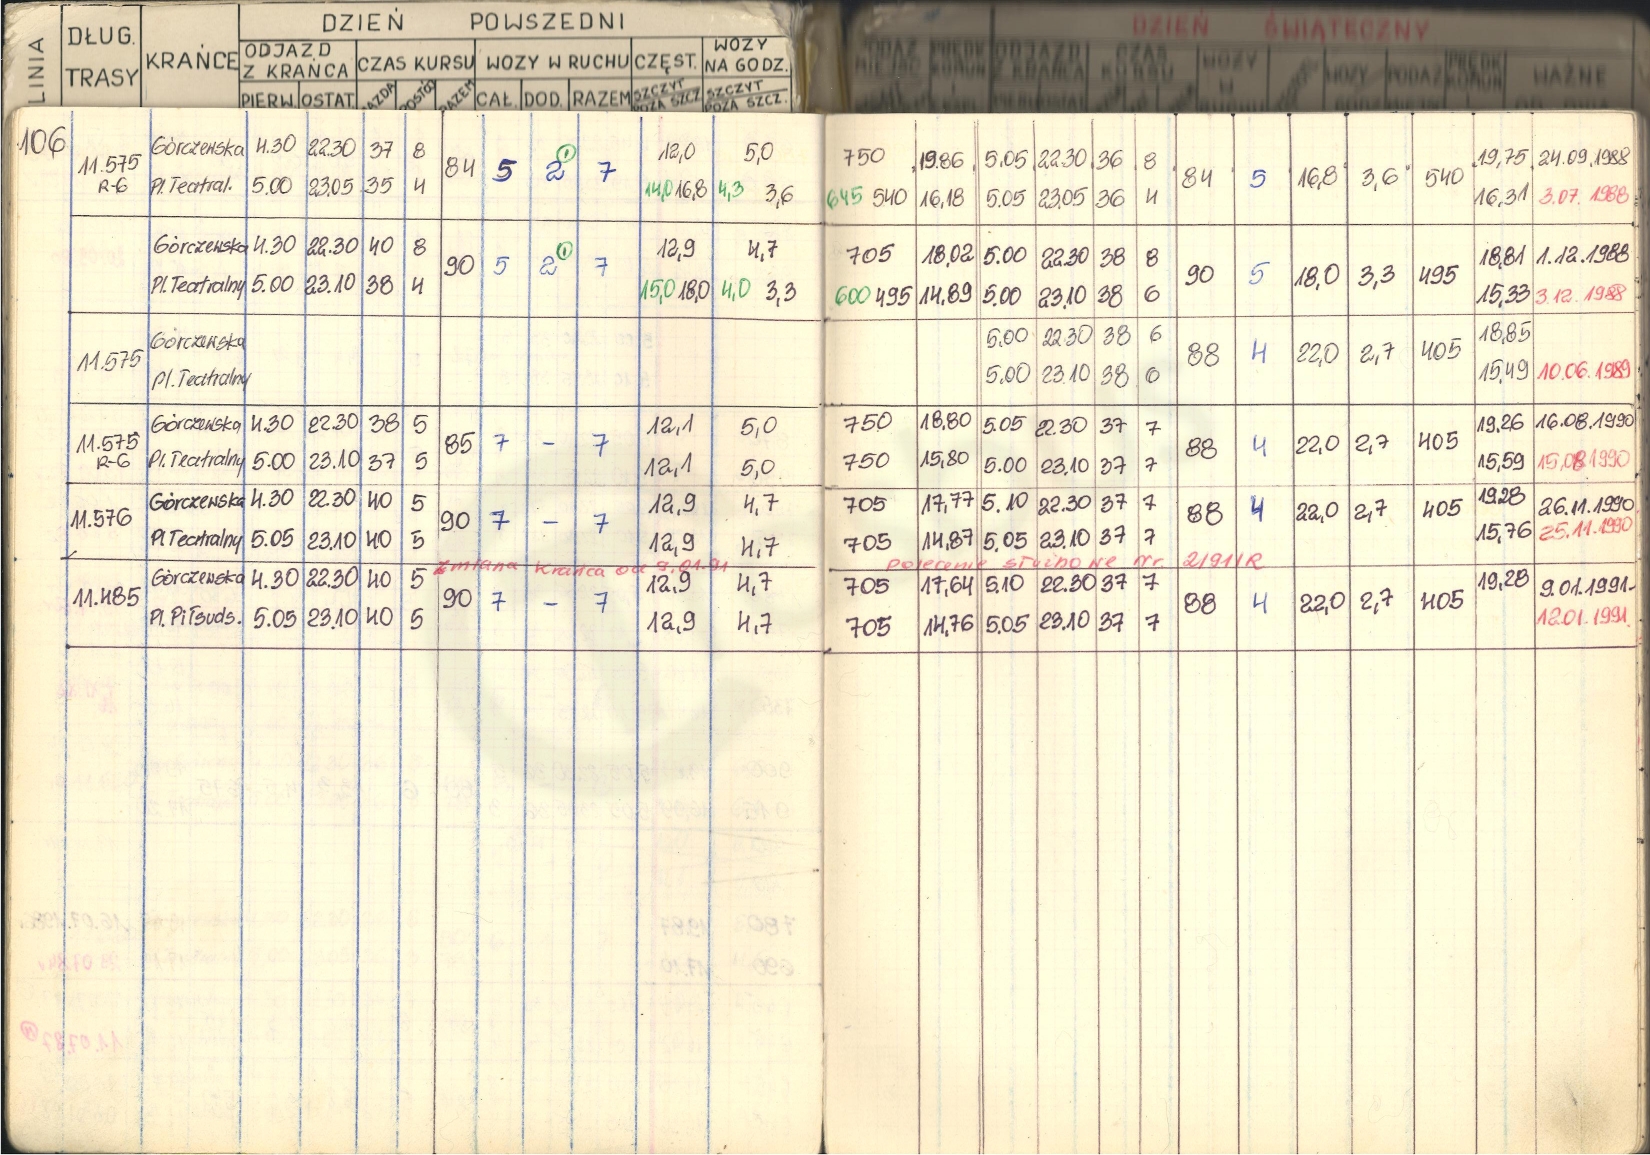 DZIEŃ POWSZEDNI
DZIEŃ ŚWIĄTECZNY
LINIA DŁUG. TRASY KRAŃCE ODJAZD Z KRAŃCA CZAS KURSU WOZY W RUCHU CZĘST. WOZY NA GODZ.
ODJAZD Z KRAŃCA CZAS KURSU WOZY W WOZY PODAŻ WAŻNE
PIERW. OSTAT. JAZDA POSTÓJ RAZEM CAŁ. DOD. RAZEM SZCZYT POZA SZCZ. SZCZYT POZA SZCZ.
106 11.575 R-6 Górczewska 4.30 22.30 37 8 84 5 2 1 7 12,0 5,0 750 19.86 5.05 22.30 36 8 84 5 16,8 3,6 540 19,75 24.09.1988
Pl. Teatral. 5.00 23.05 35 4 14,0 16,8 4,3 3,6 645 540 16,18 5.05 23.05 36 4 16,31 3.07.1988
Górczewska 4.30 22.30 40 8 90 5 2 1 7 12,9 4,7 705 18,02 5.00 22.30 38 8 90 5 18,0 3,3 495 18,81 1.12.1988
Pl. Teatralny 5.00 23.10 38 4 15,0 18,0 4,0 3,3 600 495 14,89 5.00 23.10 38 6 15,33 3.12.1988
11.575 Górczewska 5.00 22.30 38 6 88 4 22,0 2,7 405 18,85
Pl. Teatralny 5.00 23.10 38 6 15,49 10.06.1989
11.575 R-6 Górczewska 4.30 22.30 38 5 85 7 – 7 12,1 5,0 750 18,80 5.05 22.30 37 7 88 4 22,0 2,7 405 19,26 16.08.1990
Pl. Teatralny 5.00 23.10 37 5 12,1 5,0 750 15,80 5.00 23.10 37 7 15,59 15.08.1990
11.576 Górczewska 4.30 22.30 40 5 90 7 – 7 12,9 4,7 705 17,77 5.10 22.30 37 7 88 4 22,0 2,7 405 19.28 26.11.1990
Pl Teatralny 5.05 23.10 40 5 12,9 4,7 705 14,87 5.05 23.10 37 7 15,76 25.11.1990
Zmiana krańca od 9.01.91 Polecenie służbowe nr. 2/91/R
11.485 Górczewska 4.30 22.30 40 5 90 7 – 7 12,9 4,7 705 17,64 5.10 22.30 37 7 88 4 22,0 2,7 405 19,28 9.01.1991-
Pl. Piłsuds. 5.05 23.10 40 5 12,9 4,7 705 14,76 5.05 23.10 37 7 12.01.1991.